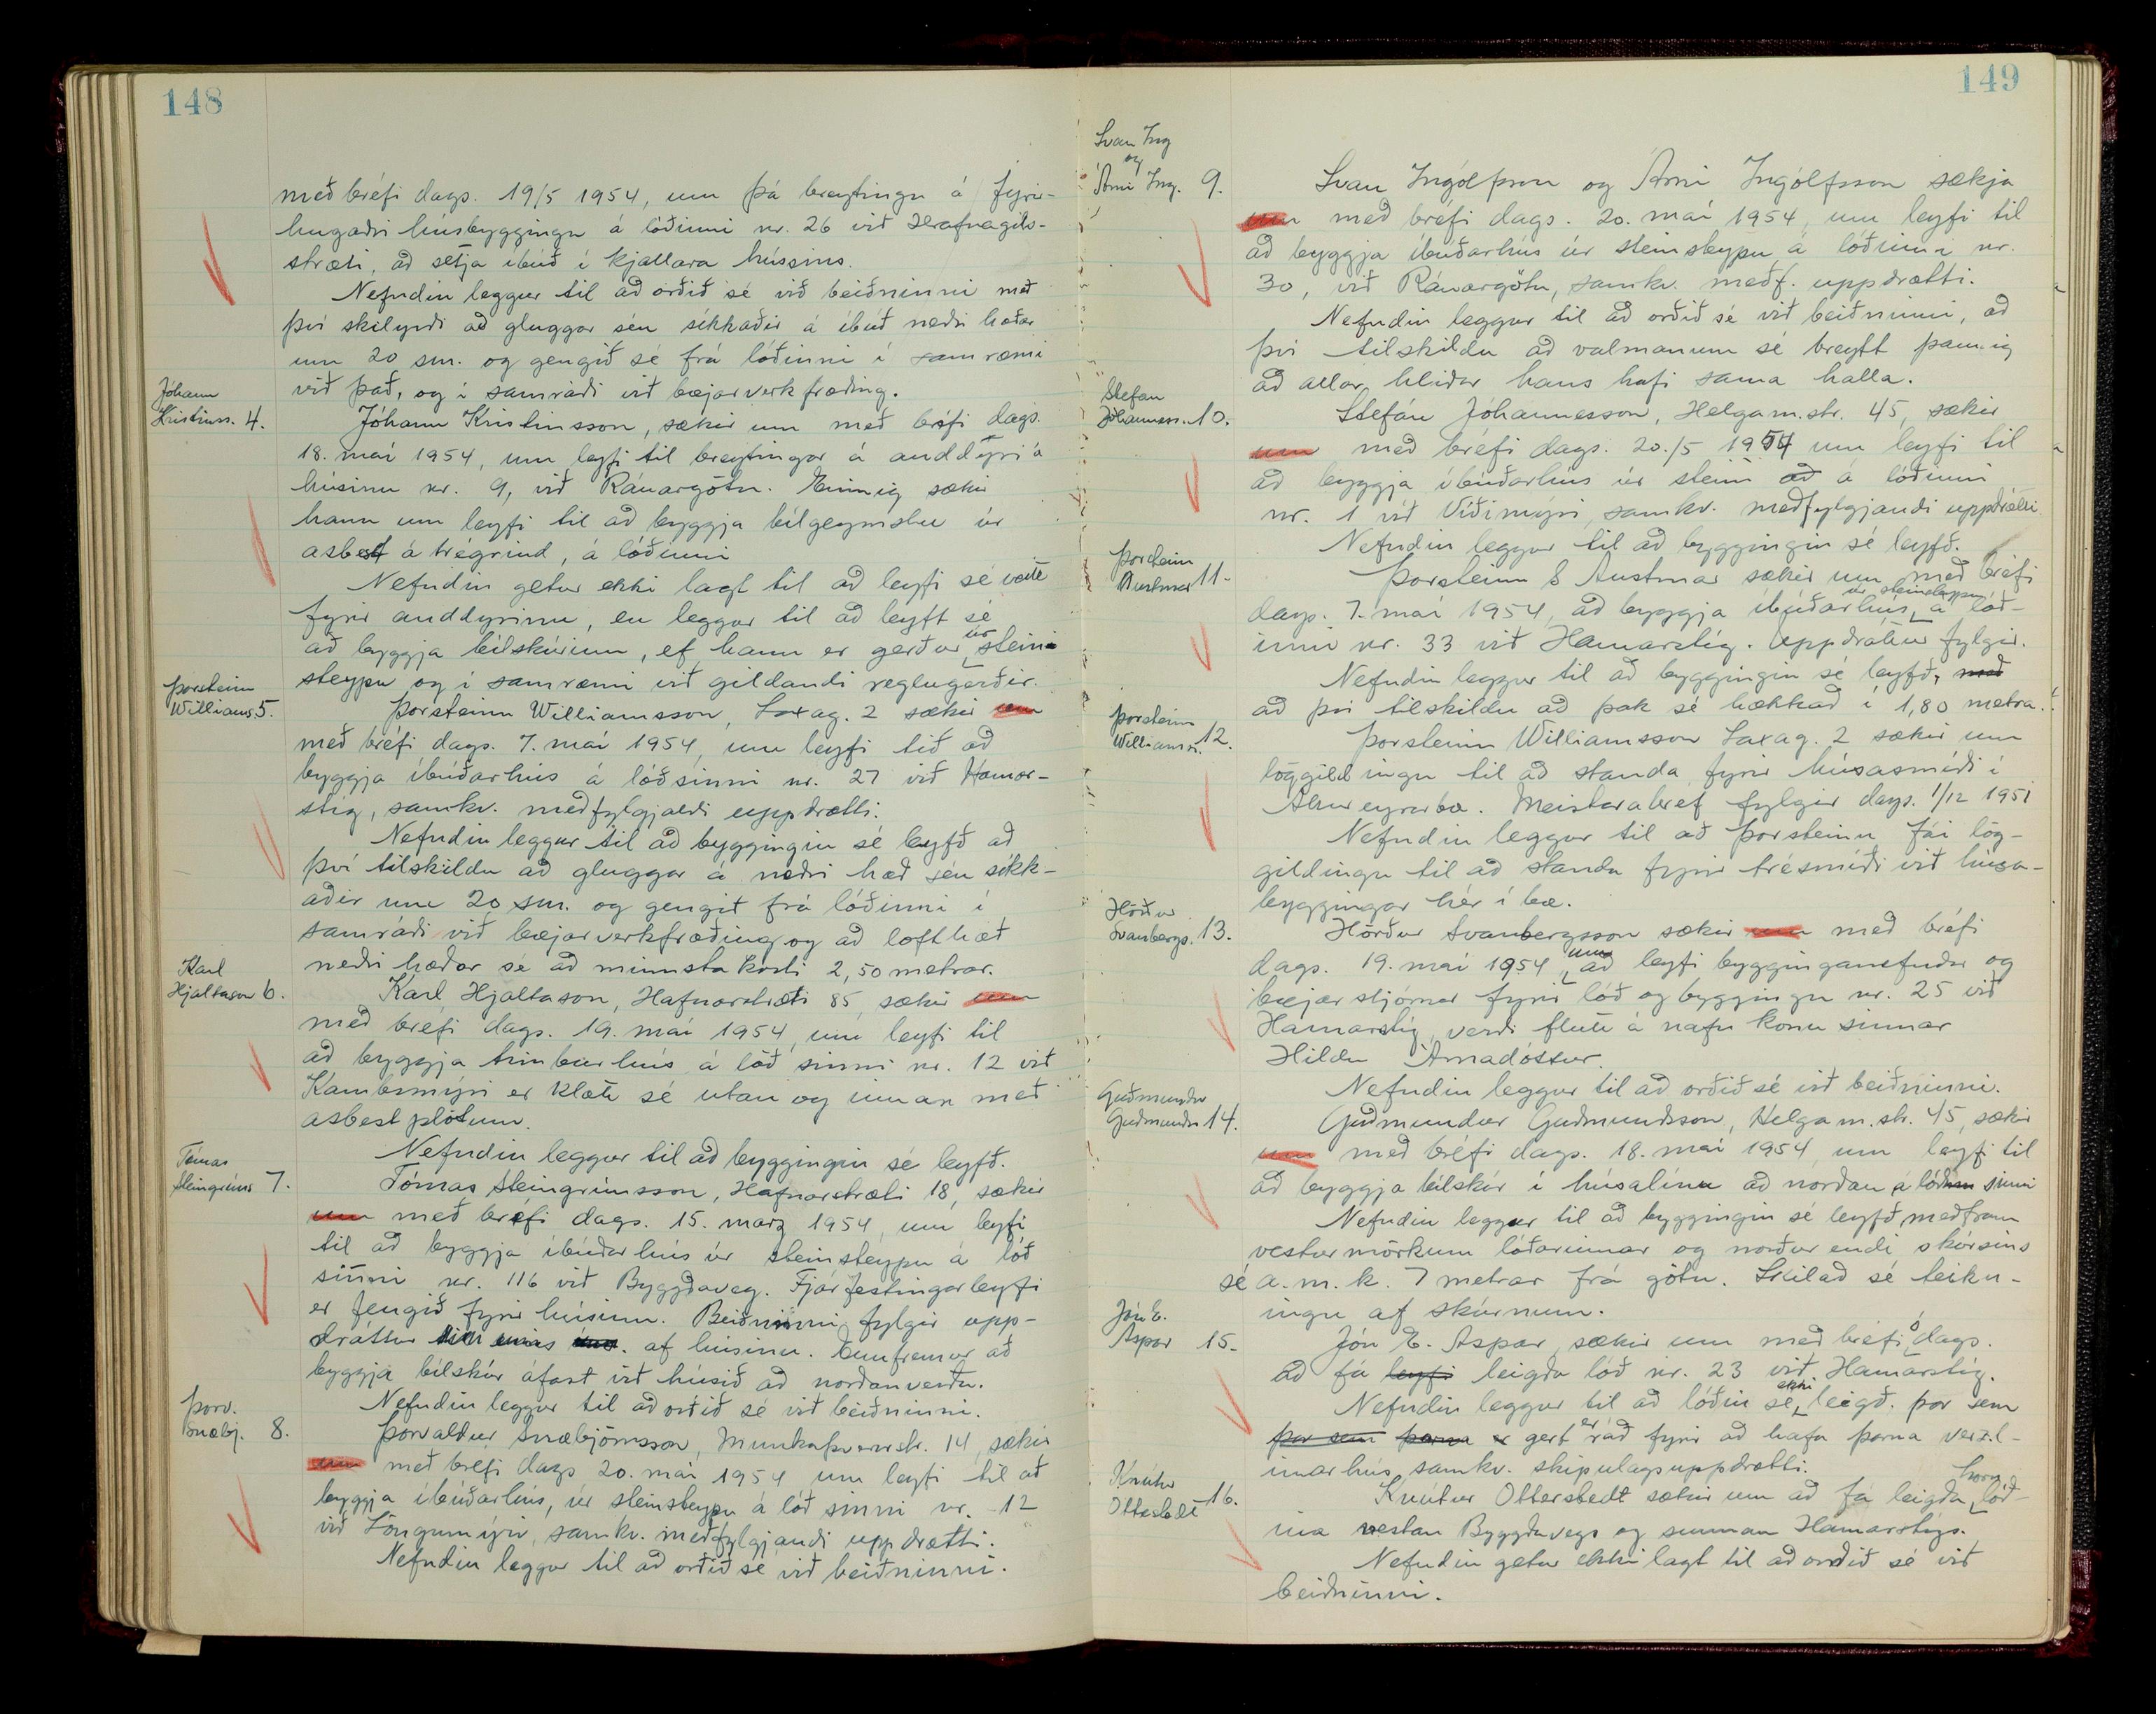 148
með bréfi dags. 19/5 1954, um þá breytingu á fyrir-
hugaðri húsbyggingu á lóðinni nr. 26 við Hrafnagils-
stræti, að setja íbúð í kjallara hússins.
Nefndin leggur til að orðið sé við beiðninni með
því skilyrði að gluggar séu síkkaðir á íbúð neðri hæðar
um 20 sm. og gengið sé frá lóðinni í samræmi
við það, og í samráði við bæjarverkfræðing.
Jóhann
Kristinss. 4.
Jóhann Kristinsson, sækir um með bréfi dags.
18. maí 1954, um leyfi til breytingar á anddyri á
húsinu nr. 9, við Ránargötu. Einnig sækir
hann um leyfi til að byggja bílgeymslu úr
asbest á trégrind, á lóðinni
Nefndin getur ekki lagt til að leyfi sé veitt
fyrir anddyrinu, en leggur til að leyft sé
að byggja bílskúrinn, ef hann er gerður úr stein-
steypu og í samræmi við gildandi reglugerðir.
Þorsteinn
Williams. 5.
Þorsteinn Williamsson, Laxag. 2 sækir um
með bréfi dags. 7. maí 1954, um leyfi til að
byggja íbúðarhús á lóð sinni nr. 27 við Hamar-
stíg, samkv. meðfylgjaldi uppdrætti.
Nefndin leggur til að byggingin sé leyfð að
því tilskildu að gluggar á neðri hæð séu síkk-
aðir um 20 sm. og gengið frá lóðinni í
samráði við bæjarverkfræðing og að lofthæð
neðri hæðar sé að minnsta kosti 2,50 metrar.
Karl
Hjaltason 6.
Karl Hjaltason, Hafnarstræti 85, sækir um
með bréfi dags. 19. maí 1954, um leyfi til
að byggja timburhús á lóð sinni nr. 12 við
Kambsmýri er klætt sé utan og innan með
asbest plötum.
Nefndin leggur til að byggingin sé leyfð.
Tómas
Steingríms 7.
Tómas Steingrímsson, Hafnarstræti 18, sækir
um með bréfi dags. 15. marz 1954, um leyfi
til að byggja íbúðarhús úr steinsteypu á lóð
sinni nr. 116 við Byggðaveg. Fjárfestingarleyfi
er fengið fyrir húsinu. Beiðninni fylgir upp-
dráttur af húsinu. Ennfremur að
byggja bílskúr áfast við húsið að norðanverðu.
Nefndin leggur til að orðið sé við beiðninni.
Þorv.
Snæbj. 8.
Þorvaldur Snæbjörnsson, Munkaþverárstr. 14, sækir
um með bréfi dags 20. maí 1954 um leyfi til að
byggja íbúðarhús, úr steinsteypu á lóð sinni nr. 12
við Löngumýri, samkv. meðfylgjandi uppdrætti.
Nefndin leggur til að orðið sé við beiðninni.
149
Svan Ing
og
Árni Ing. 9.
Svan Ingólfsson og Árni Ingólfsson sækja
um með bréfi dags. 20. maí 1954, um leyfi til
að byggja íbúðarhús úr steinsteypu á lóðinni nr.
30, við Ránargötu, samkv. meðf. uppdrætti.
Nefndin leggur til að orðið sé við beiðninni, að
því tilskildu að valmanum sé breytt þannig
að allar hliðar hans hafi sama halla.
Stefán
Jóhanness. 10.
Stefán Jóhannesson, Helgam.str. 45, sækir
um með bréfi dags. 20./5 1954 um leyfi til
að byggja íbúðarhús úr steini að á lóðinni
nr. 1 við Víðimýri, samkv. meðfylgjandi uppdrætti
Nefndin leggur til að byggingin sé leyfð.
Þorsteinn
Austmar 11-
Þorsteinn S Austmar sækir um með bréfi
dags. 7. maí 1954, að byggja íbúðarhús úr steinsteypu á lóð-
inni nr. 33 við Hamarstíg. Uppdráttur fylgir.
Nefndin leggur til að byggingin sé leyfð, með
að því tilskildu að þak sé hækkað í 1,80 metra.
Þorsteinn
Williamss. 12.
Þorsteinn Williamsson Laxag. 2 sækir um
löggildingu til að standa fyrir húsasmíði í
Akureyrarbæ. Meistarabréf fylgir dags. 1/12 1951
Nefndin leggur til að Þorsteinn fái lög-
gildingu til að standa fyrir trésmíði við húsa-
byggingar hér í bæ.
Hörður
Svanbergs. 13.
Hörður Svanbergsson sækir um með bréfi
dags. 19. maí 1954 um að leyfi bygginganefndar og
bæjarstjórnar fyrir lóð og byggingu nr. 25 við
Hamarstíg, verði flutt á nafn konu sinnar
Hildu Árnadóttur.
Nefndin leggur til að orðið sé við beiðninni.
Guðmundur
Guðmunds 14.
Guðmundur Guðmundsson, Helgam.str. 45, sækir
um með bréfi dags. 18. maí 1954, um leyfi til
að byggja bílskúr í húsalínu að norðan á lóðinni sinni
Nefndin leggur til að byggingin sé leyfð meðfram
vesturmörkum lóðarinnar og norður endi skúrsins
sé a.m.k. 7 metrar frá götu. Skilað sé teikn-
ingu af skúrnum.
Jón E.
Aspar 15.
Jón E. Aspar, sækir um með bréfi ódags.
að fá leyfi leigða lóð nr. 23 við Hamarstíg.
Nefndin leggur til að lóðin sé ekki leigð. þar sem
þar sem þarna er gert er ráð fyrir að hafa þarna verzl-
unarhús, samkv. skipulagsuppdrætti.
Knútur
Otterstedt 16.
Knútur Otterstedt sækir um að fá leigða horn lóð-
ina vestan Byggðavegs og sunnan Hamarstígs.
Nefndin getur ekki lagt til að orðið sé við
beiðninni.